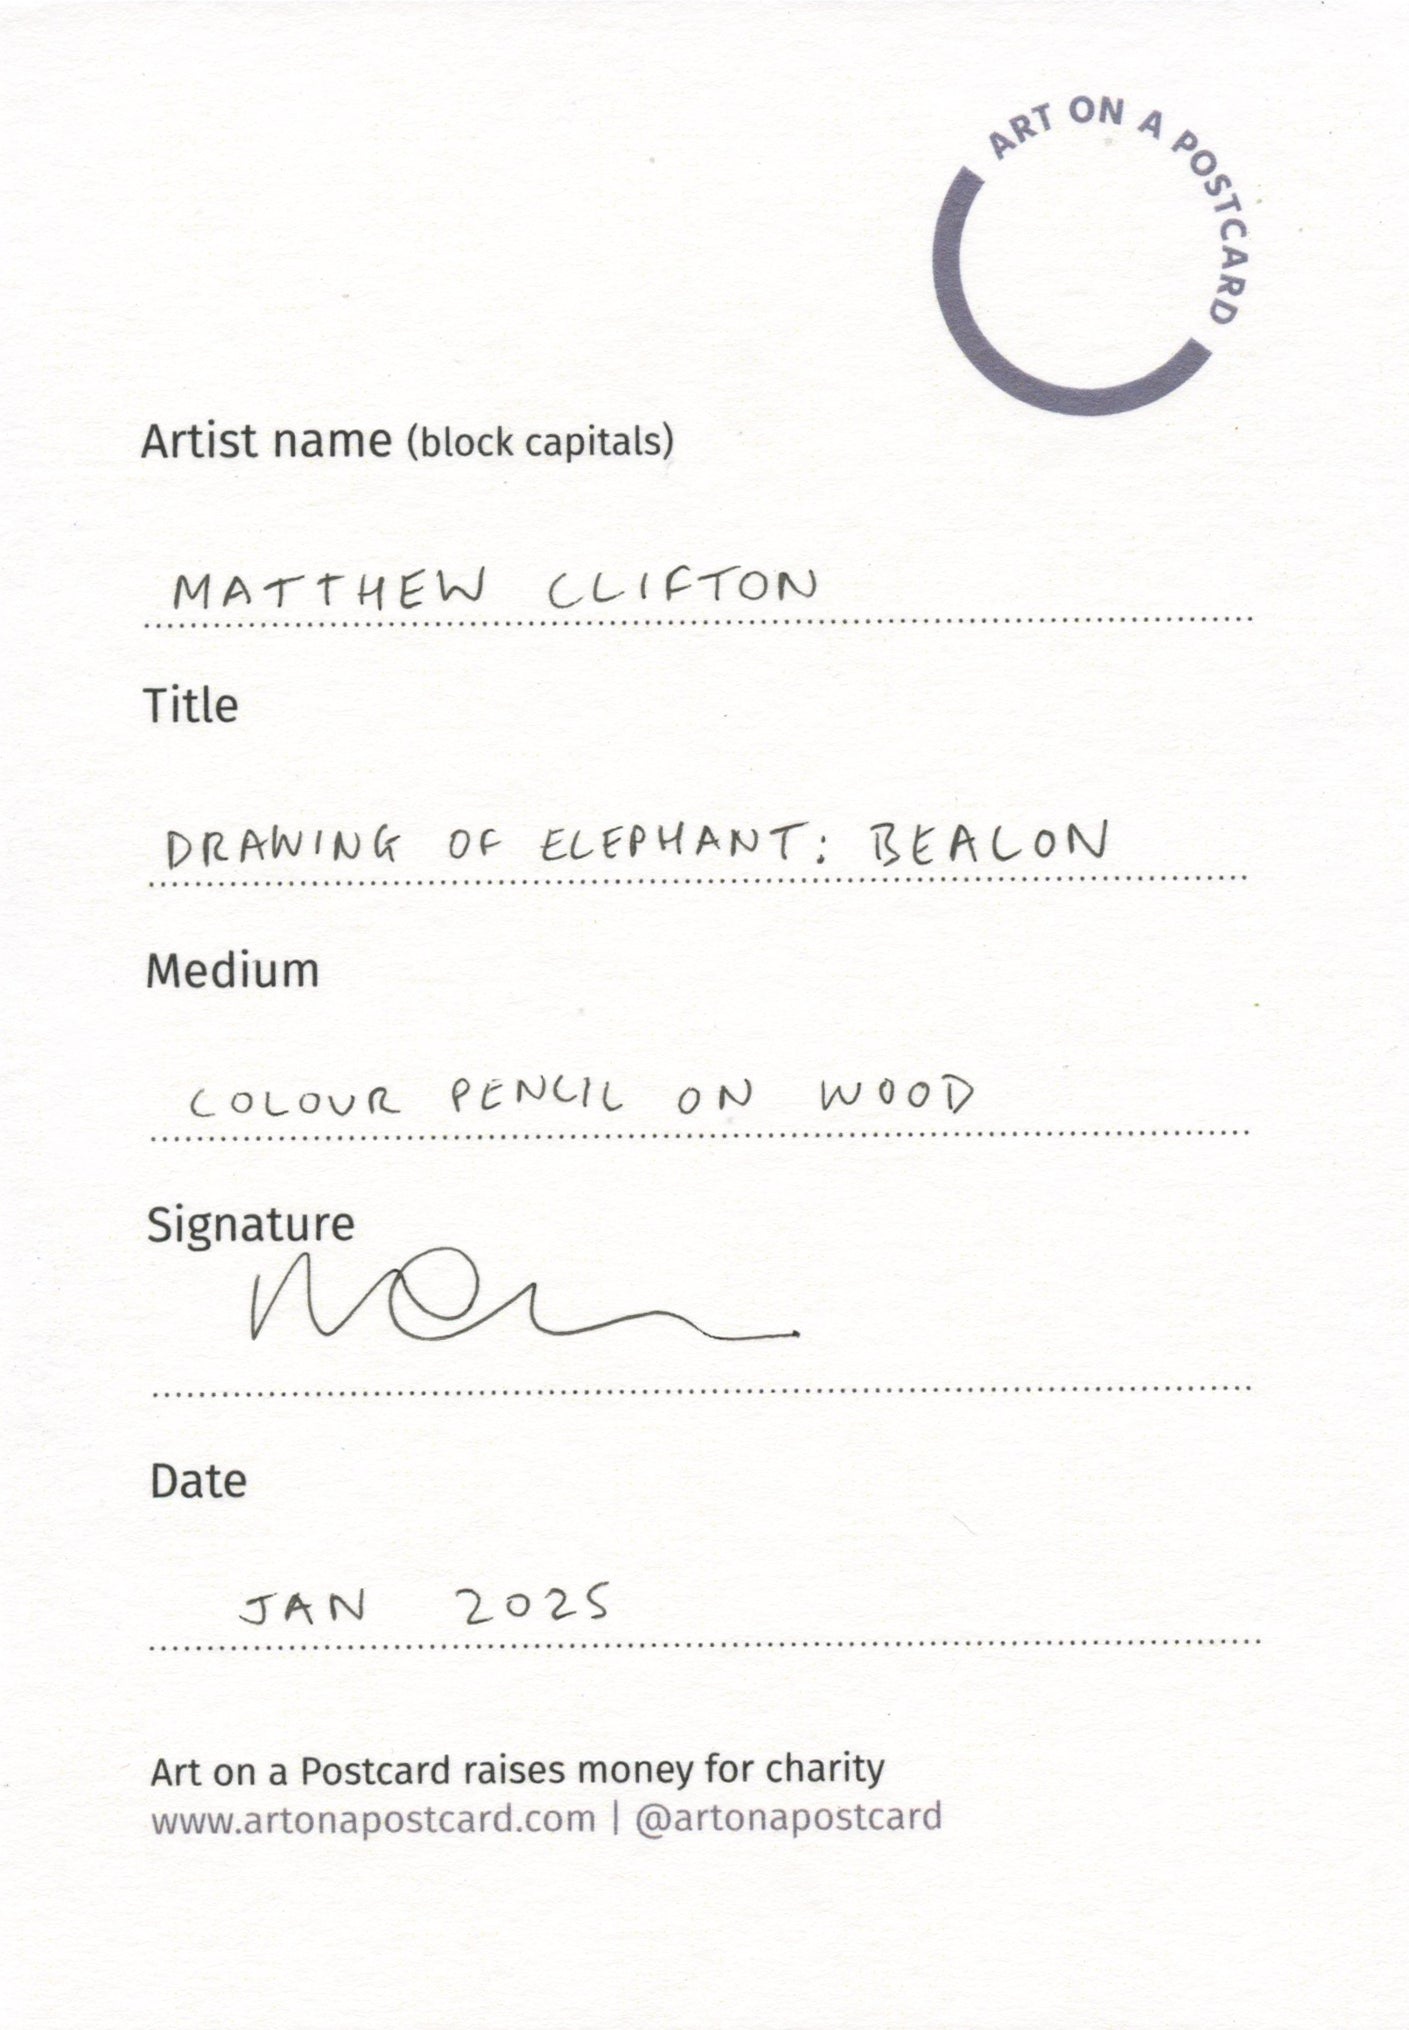 ART ON A POSTCARD
Artist name (block capitals)
MATTHEW CLIFTON
Title
DRAWING OF ELEPHANT: BEACON
Medium
COLOUR PENCIL ON WOOD
Signature
Date
JAN 2025
Art on a Postcard raises money for charity
www.artonapostcard.com | @artonapostcard